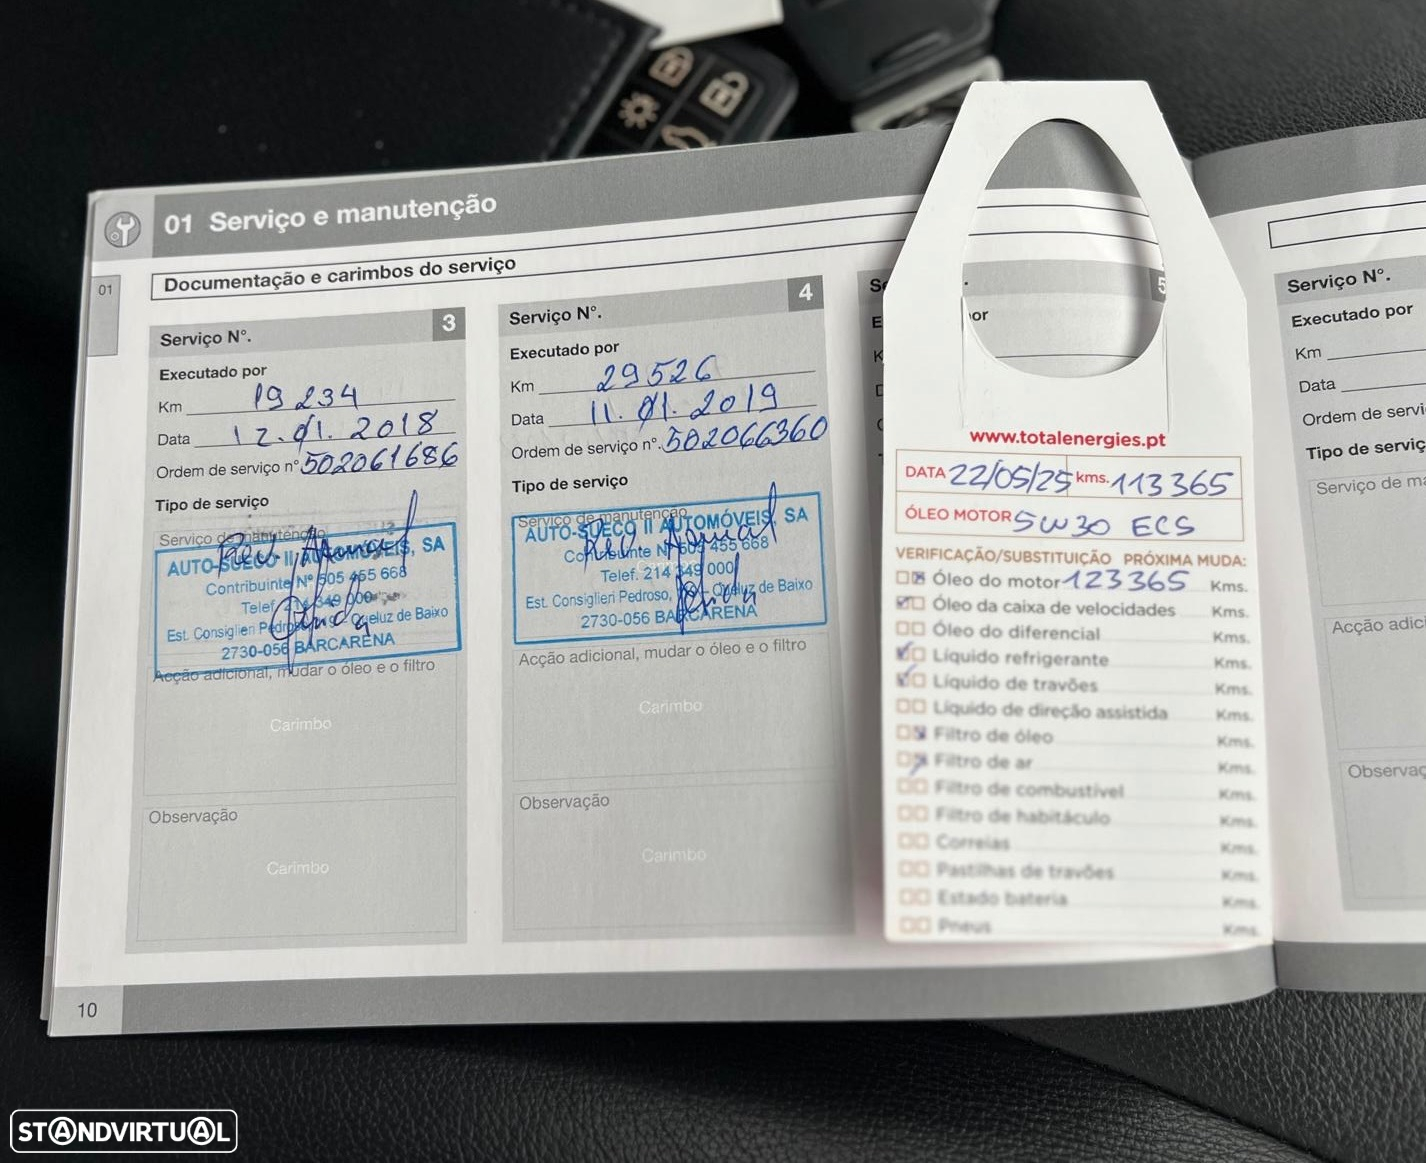 01 Serviço e manutenção
01
Documentação e carimbos do serviço
Serviço N°.
3
Executado por
Km 19 234
Data 12.01.2018
Ordem de serviço n° 502061686
Tipo de serviço
Serviço de manutenção
AUTO-SUECO II AUTOMÓVEIS, SA
Contribuinte Nº 505 455 668
Telef. 214 349 000
Est. Consiglieri Pedroso, Queluz de Baixo
2730-056 BARCARENA
Acção adicional, mudar o óleo e o filtro
Carimbo
Observação
Carimbo
10
Serviço N°.
4
Executado por
Km 29526
Data 11.01.2019
Ordem de serviço n°. 502066360
Tipo de serviço
Serviço de manutenção
AUTO-SUECO II AUTOMÓVEIS, SA
Contribuinte Nº 505 455 668
Telef. 214 349 000
Est. Consiglieri Pedroso, Queluz de Baixo
2730-056 BARCARENA
Acção adicional, mudar o óleo e o filtro
Carimbo
Observação
Carimbo
5
www.totalenergies.pt
DATA 22/05/25 kms. 113365
ÓLEO MOTOR 5W30 ECS
VERIFICAÇÃO/SUBSTITUIÇÃO PRÓXIMA MUDA:
Óleo do motor 123365 Kms.
Óleo da caixa de velocidades Kms.
Óleo do diferencial Kms.
Líquido refrigerante Kms.
Líquido de travões Kms.
Líquido de direção assistida Kms.
Filtro de óleo Kms.
Filtro de ar Kms.
Filtro de combustível Kms.
Filtro de habitáculo Kms.
Correias Kms.
Pastilhas de travões Kms.
Estado bateria Kms.
Pneus Kms.
Serviço N°.
Executado por
Km
Data
Ordem de servi
Tipo de serviç
Serviço de ma
Acção adici
Observaç
STANDVIRTUAL